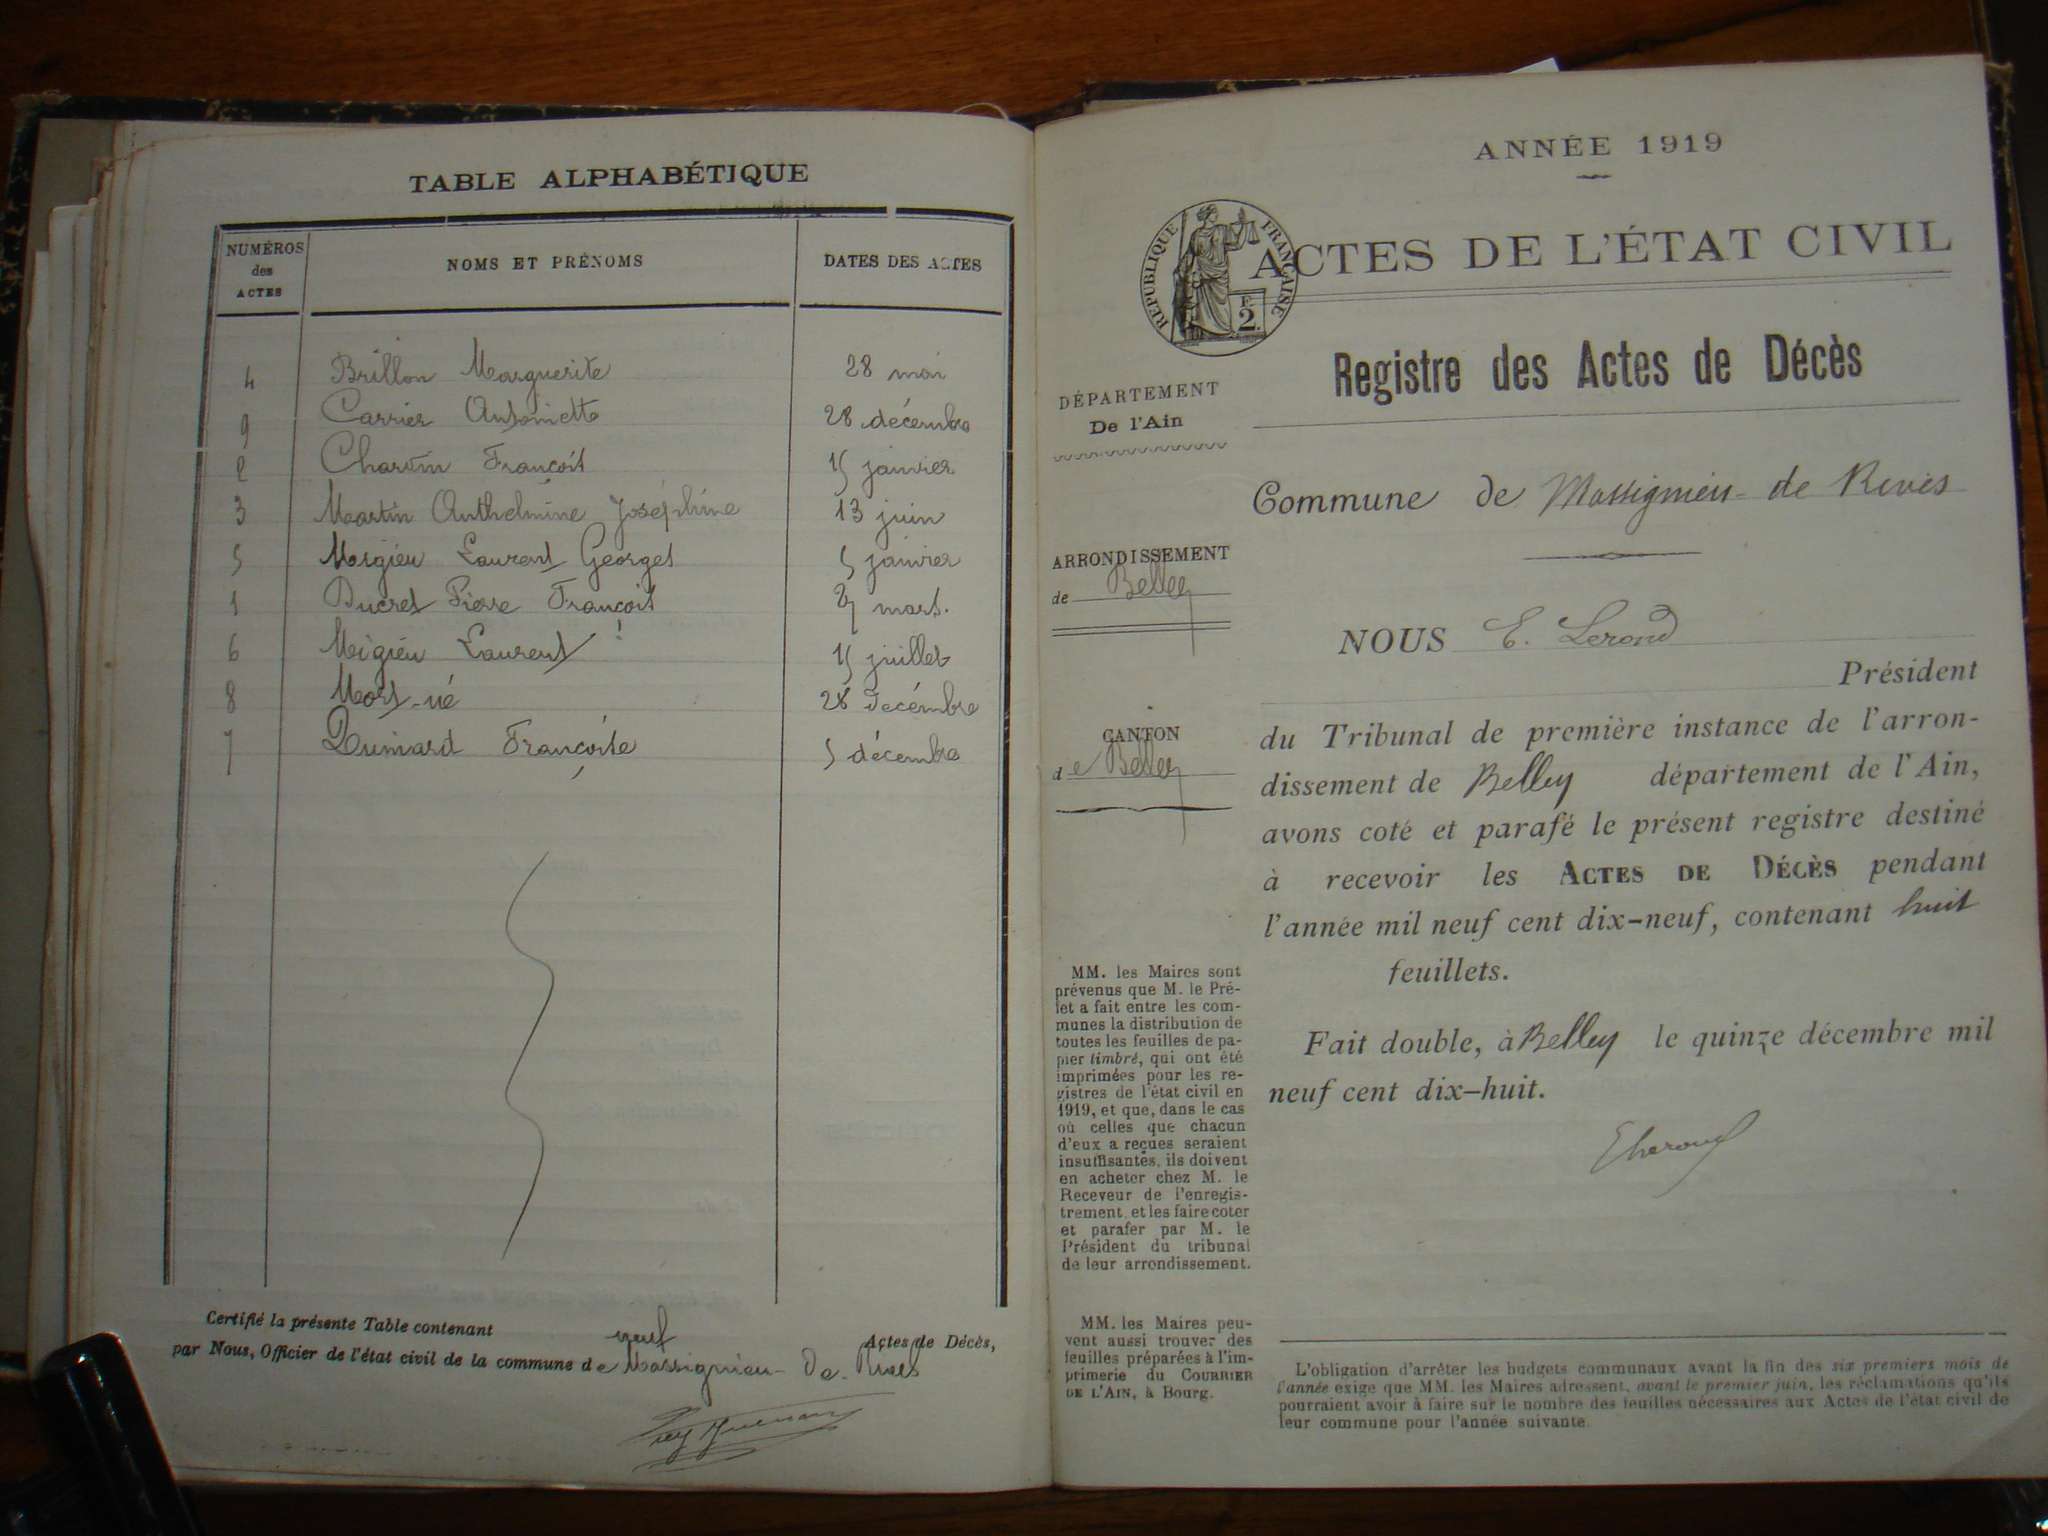 TABLE ALPHABÉTIQUE
NUMÉROS des ACTES
NOMS ET PRÉNOMS
DATES DES ACTES
4 Brillon Marguerite 28 mai
9 Carrier Antoinette 28 décembre
2 Charvin François 15 janvier
3 Martin Anthelmine Joséphine 13 juin
5 Laurent Georges 5 janvier
1 Ducret Pierre François mars.
6 Migieu Laurent 15 juillet
8 Mort-né 28 décembre
7 Françoise 5 décembre
Certifié la présente Table contenant neuf Actes de Décès,
par Nous, Officier de l'état civil de la commune de Massignieu-de-Rives
ANNÉE 1919
RÉPUBLIQUE FRANÇAISE
F. 2.
ACTES DE L'ÉTAT CIVIL
Registre des Actes de Décès
DÉPARTEMENT
De l'Ain
Commune de Massignieu-de Rives
ARRONDISSEMENT
de Belley
CANTON
de Belley
NOUS E. Lerond
Président
du Tribunal de première instance de l'arron-
dissement de Belley département de l'Ain,
avons coté et parafé le présent registre destiné
à recevoir les ACTES DE DÉCÈS pendant
l'année mil neuf cent dix-neuf, contenant huit
feuillets.
Fait double, à Belley le quinze décembre mil
neuf cent dix-huit.
MM. les Maires sont
prévenus que M. le Pré-
fet a fait entre les com-
munes la distribution de
toutes les feuilles de pa-
pier timbré, qui ont été
imprimées pour les re-
gistres de l'état civil en
1919, et que, dans le cas
où celles que chacun
d'eux a reçues seraient
insuffisantes, ils doivent
en acheter chez M. le
Receveur de l'enregis-
trement, et les faire coter
et parafer par M. le
Président du tribunal
de leur arrondissement.
MM. les Maires peu-
vent aussi trouver des
feuilles préparées à l'im-
primerie du COURRIER
DE L'AIN, à Bourg.
L'obligation d'arrêter les budgets communaux avant la fin des six premiers mois de
l'année exige que MM. les Maires adressent, avant le premier juin, les réclamations qu'ils
pourraient avoir à faire sur le nombre des feuilles nécessaires aux Actes de l'état civil de
leur commune pour l'année suivante.